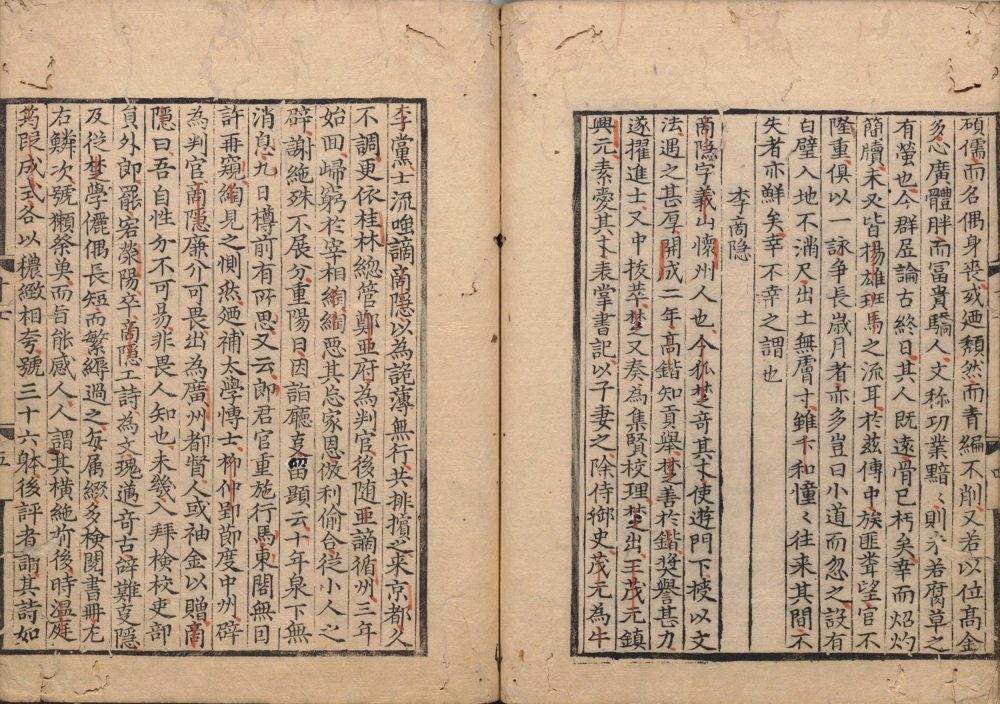 碩儒而名偶身喪或廼頹然而青編不削又若以位髙金
多心廣體胖而冨貴驕人文称功業黯〻則未若腐草之
有螢也今群居論古終日其人既遠骨已朽矣幸而炤灼
簡牘未必皆楊雄班馬之流耳於兹傳中族匪聋望官不
隆重俱以一詠爭長歳月者亦多豈曰小道而忽之設有
白璧入地不消尺出土無膚寸雖卞和憧〻往来其間不
失者亦鮮矣幸不幸之謂也
李商隐
商隐字義山懷州人也令狐楚奇其才使遊門下授以文
法遇之甚厚開成二年髙鍇知貢舉楚善於鍇奬譽甚力
遂擢進士又中拔萃楚又奏為集賢校理楚出王茂元鎮
興元素愛其才表掌書記以子妻之除侍御史茂元為牛
李黨士流嗤謫商隐以為詭薄無行共排擯之来京都久
不調更依桂林總管鄭亜府為判官後随亜謫循州三年
始回歸窮於宰相綯綯惡其忘家恩放利偷合從小人之
辟謝絶殊不展分重陽日因詣廳事留題云十年泉下無
消息九日樽前有所思又云郎君官重施行馬東閣無因
許再窺綯見之惻然廼補太學博士栁仲郢節度中州辟
為判官商隐廉介可畏出為廣州都督人或袖金以贈商
隐曰吾自性分不可易非畏人知也未幾入拜檢校吏部
貟外郎罷客滎陽卒商隐工詩為文瑰邁奇古辭難事隐
及從楚學儷偶長短而繁縟過之每属綴多檢閱書冊左
右鱗次號獺祭魚而旨能感人人謂其横絶前後時温庭
筠段成式各以穠緻相夸號三十六躰後評者謂其詩如